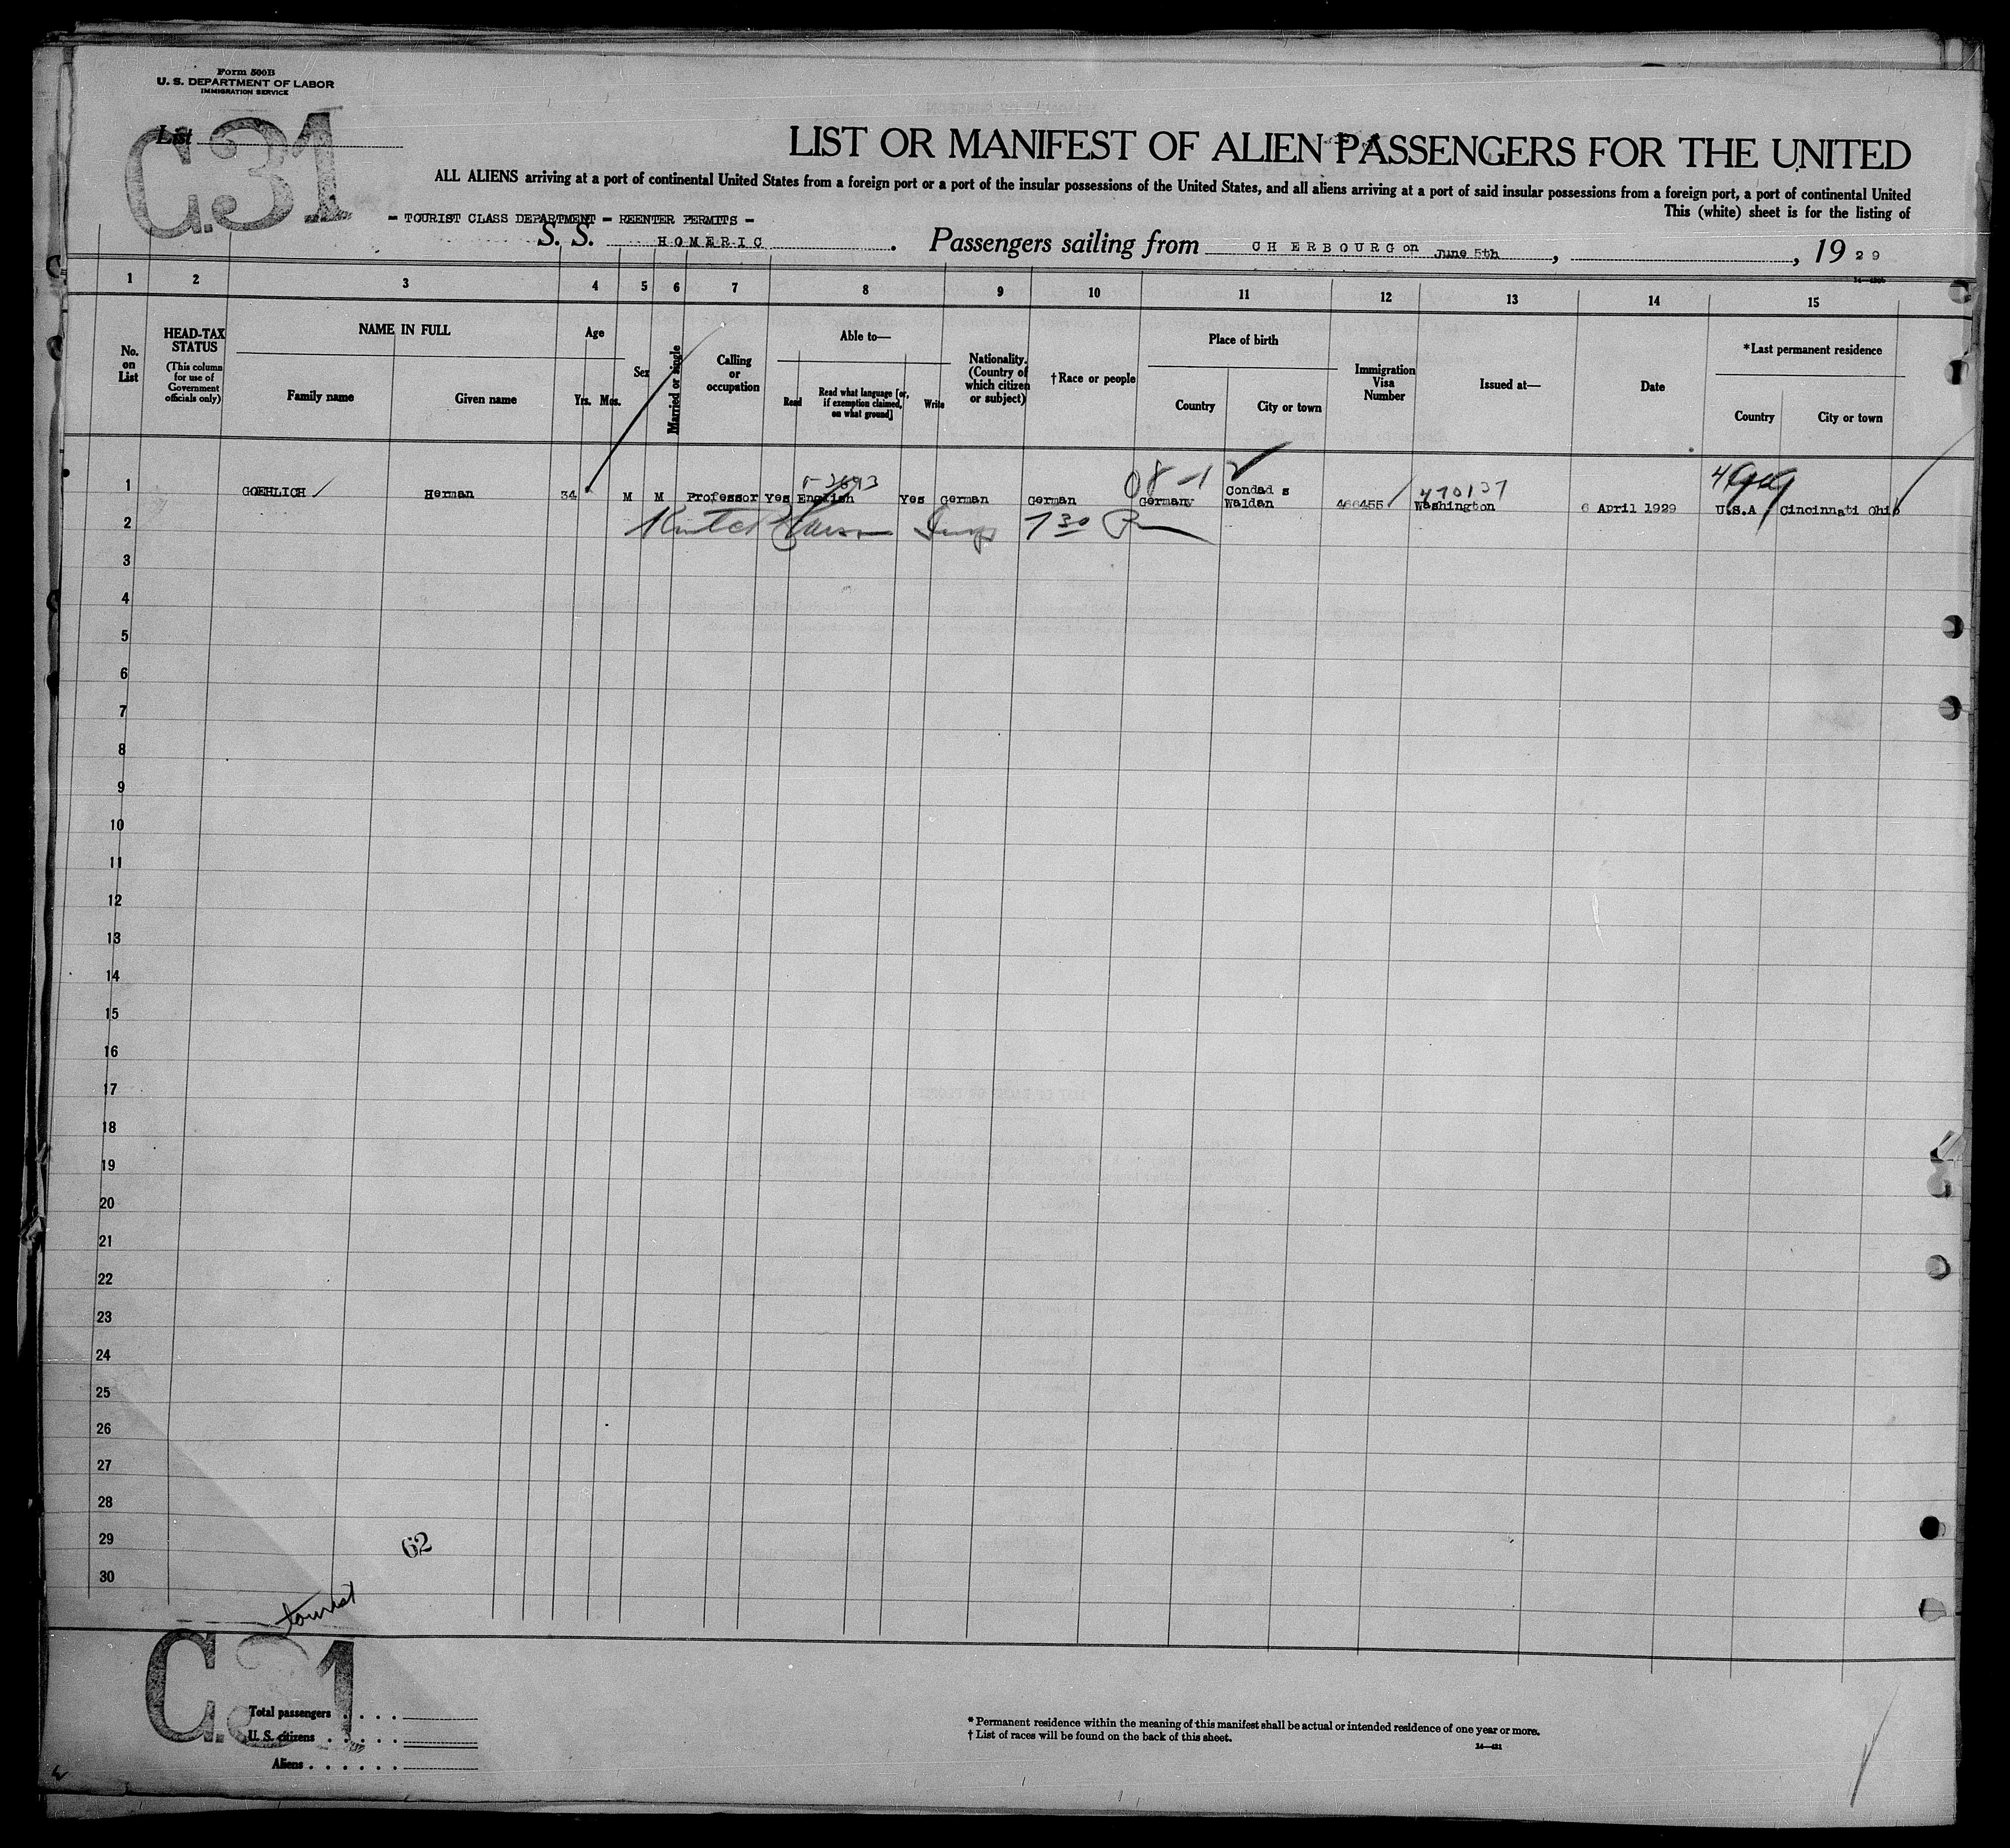 Form 500B
U. S. DEPARTMENT OF LABOR
IMMIGRATION SERVICE
List
C.31
LIST OR MANIFEST OF ALIEN PASSENGERS FOR THE UNITED
ALL ALIENS arriving at a port of continental United States from a foreign port or a port of the insular possessions of the United States, and all aliens arriving at a port of said insular possessions from a foreign port, a port of continental United
This (white) sheet is for the listing of
- TOURIST CLASS DEPARTMENT - REENTER PERMITS -
S. S. HOMERIC. Passengers sailing from CHERBOURG on June 5th, , 19 29
1 2 3 4 5 6 7 8 9 10 11 12 13 14 15
No. on List
HEAD-TAX STATUS
(This column for use of Government officials only)
NAME IN FULL
Family name
Given name
Age
Yrs. Mos.
Sex
Married or single
Calling or occupation
Able to—
Read
Read what language [or, if exemption claimed, on what ground]
Write
Nationality. (Country of which citizen or subject)
†Race or people
Place of birth
Country
City or town
Immigration Visa Number
Issued at—
Date
*Last permanent residence
Country
City or town
1
08-12
470137
1 GOEHLICH Herman 34 M M Professor Yes English Yes German German Germany Condad s Waldan 466455 Washington 6 April 1929 U.S.A Cincinnati Ohio
2
7 30
3
4
5
6
7
8
9
10
11
12
13
14
15
16
17
18
19
20
21
22
23
24
25
26
27
28
29
30
62
tourist
C.31
Total passengers . . . .
U. S. citizens . . . . .
Aliens . . . . . .
* Permanent residence within the meaning of this manifest shall be actual or intended residence of one year or more.
† List of races will be found on the back of this sheet.
14—421